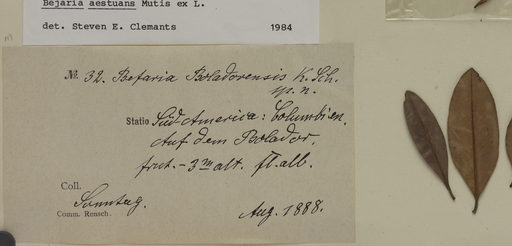 Bejaria aestuans Mutis ex L.
det. Steven E. Clemants 1984
№. 32. Befaria Boladorensis K. Sch.
sp. n.
Statio Süd-America: Columbien.
Auf dem Bolador.
frut. – 3 m alt. fl. alb.
Coll.
Sonntag.
Comm. Rensch. Aug. 1888.